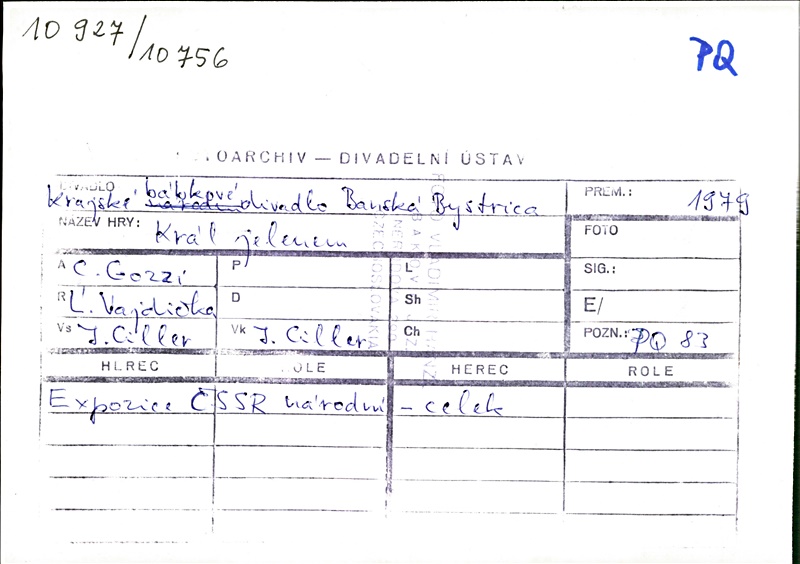 10 927/10 756
PQ
OARCHIV — DIVADELNÍ ÚSTAV
DIVADLO
Krajské bábkové národní divadlo Banská Bystrica
PREM.: 1979
NÁZEV HRY: Král jelenem
FOTO
A C. Gozzi
P
L
SIG.:
R Ľ. Vajdička
D
Sh
E/
Vs J. Ciller
Vk J. Ciller
Ch
POZN.: PQ 83
HEREC
OLE
HEREC
ROLE
Expozice ČSSR národní – celek